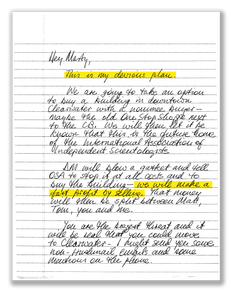 Hey Marty,
This is my devious plan.
We are going to take an option
to buy a building in downtown
Clearwater with a nominee buyer -
maybe the old One Stop Shoppe next
to the CB. We will then let it be
known that this is the future home
of the International Association of
Independent Scientologists.
DM will blow a gasket and tell
OSA to stop it at all costs and to
buy the building - we will make a
fast profit by selling. That money
will then be split between Matt,
Tom, you and me.
You are the biggest threat and it
will be real that you could move
to Clearwater - I might send you some
non-hushmail emails and some
mentions on the phone.